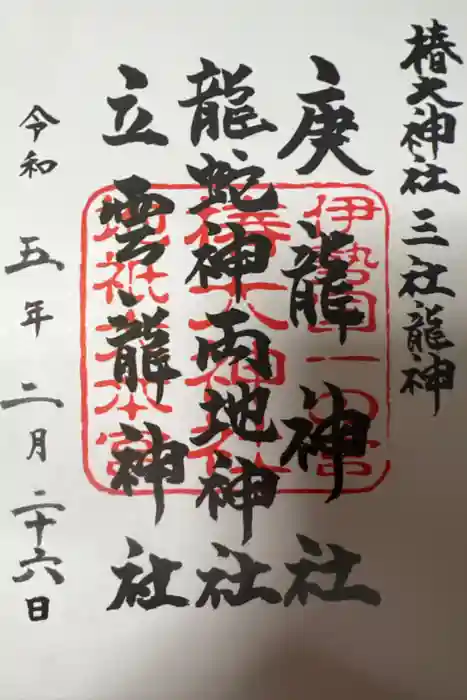 椿大神社 三社龍神
庚龍神社
龍蛇神両地神社
立雲龍神社
令和五年二月二十六日
伊勢国一の宮
椿大神社
地祇大本宮